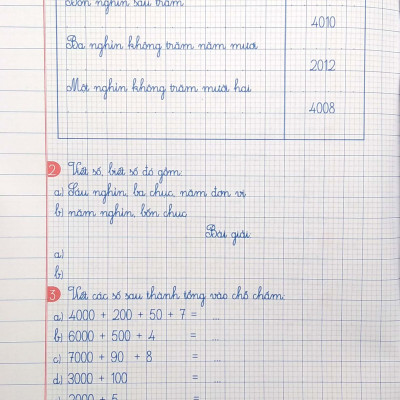 Bốn nghìn sáu trăm
4010
Ba nghìn không trăm năm mươi
2012
Một nghìn không trăm mười hai
4008
2 Viết số, biết số đó gồm:
a) Sáu nghìn, ba chục, năm đơn vị
b) năm nghìn, bốn chục
Bài giải
a)
b)
3 Viết các số sau thành tổng vào chỗ chấm:
a) 4000 + 200 + 50 + 7 = ...
b) 6000 + 500 + 4 = ...
c) 7000 + 90 + 8 = ...
d) 3000 + 100 = ...
2000 + 5